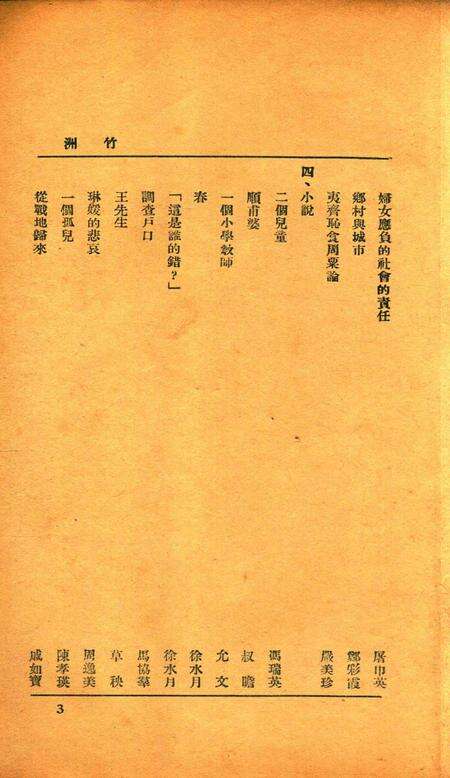 竹洲
婦女應負的社會的責任 屠巾英
鄉村與城市 鄭彩霞
夷齊恥食周粟論 嚴美珍
四、小說
二個兒童 馮瑞英
順甫婆 叔瞻
一個小學教師 允文
春 徐水月
「這是誰的錯?」 徐水月
調查戶口 馬協羣
王先生 草秧
琳媛的悲哀 周逸美
一個孤兒 陳孝瑛
從戰地歸來 戚如寶
3